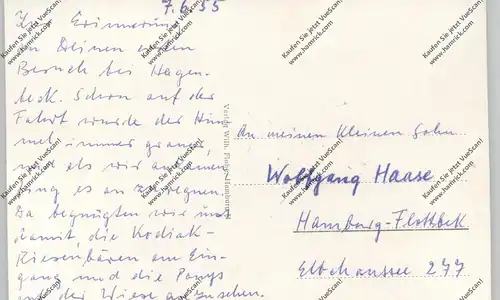 7.6.55
Zur Erinnerung
an Deinen ersten
Besuch bei Hagen-
beck. Schon auf der
Fahrt wurde der Him-
mel immer grauer,
und als wir ankamen
fing es an zu regnen.
Da begnügten wir uns
damit, die Kodiak-
Riesenbären am Ein-
gang und die Ponys
auf der Wiese anzusehen.
Verlag Wilh. Hamburg
An meinen kleinen Sohn
Wolfgang Haase
Hamburg-Flottbek
Elbchaussee 277
Kaufen Sie jetzt VueScan!
www.hamrick.com